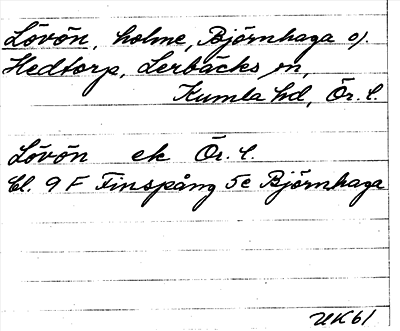 Lövön, holme, Björnhaga o.
Hedtorp, Lerbäcks sn,
Kumla hd, Ör. l.
Lövön ek Ör. l.
bl. 9 F Finspång 5e Björnhaga
UK61